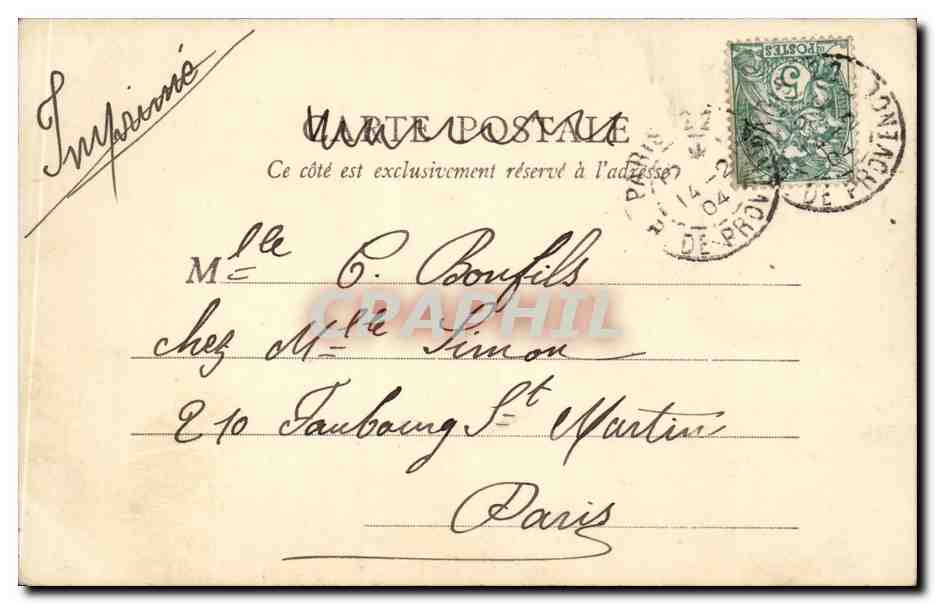 Imprimé
CARTE POSTALE
Ce côté est exclusivement réservé à l'adresse
POSTES
5
PARIS
14 -2
04
DE PROVENCE
DE PROVENCE
Mlle C. Bonfils
CPAPHIL
chez Mlle Simon
210 Faubourg St Martin
Paris